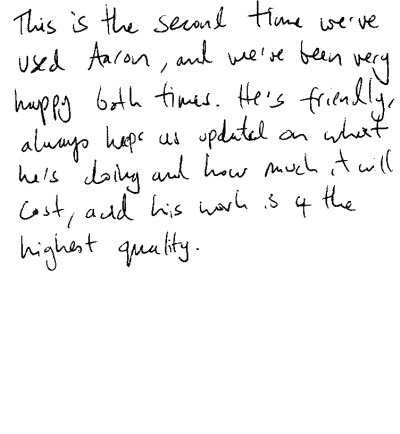 This is the second time we've
used Aaron, and we've been very
happy both times. He's friendly,
always keeps us updated on what
he's doing and how much it will
cost, and his work is of the
highest quality.